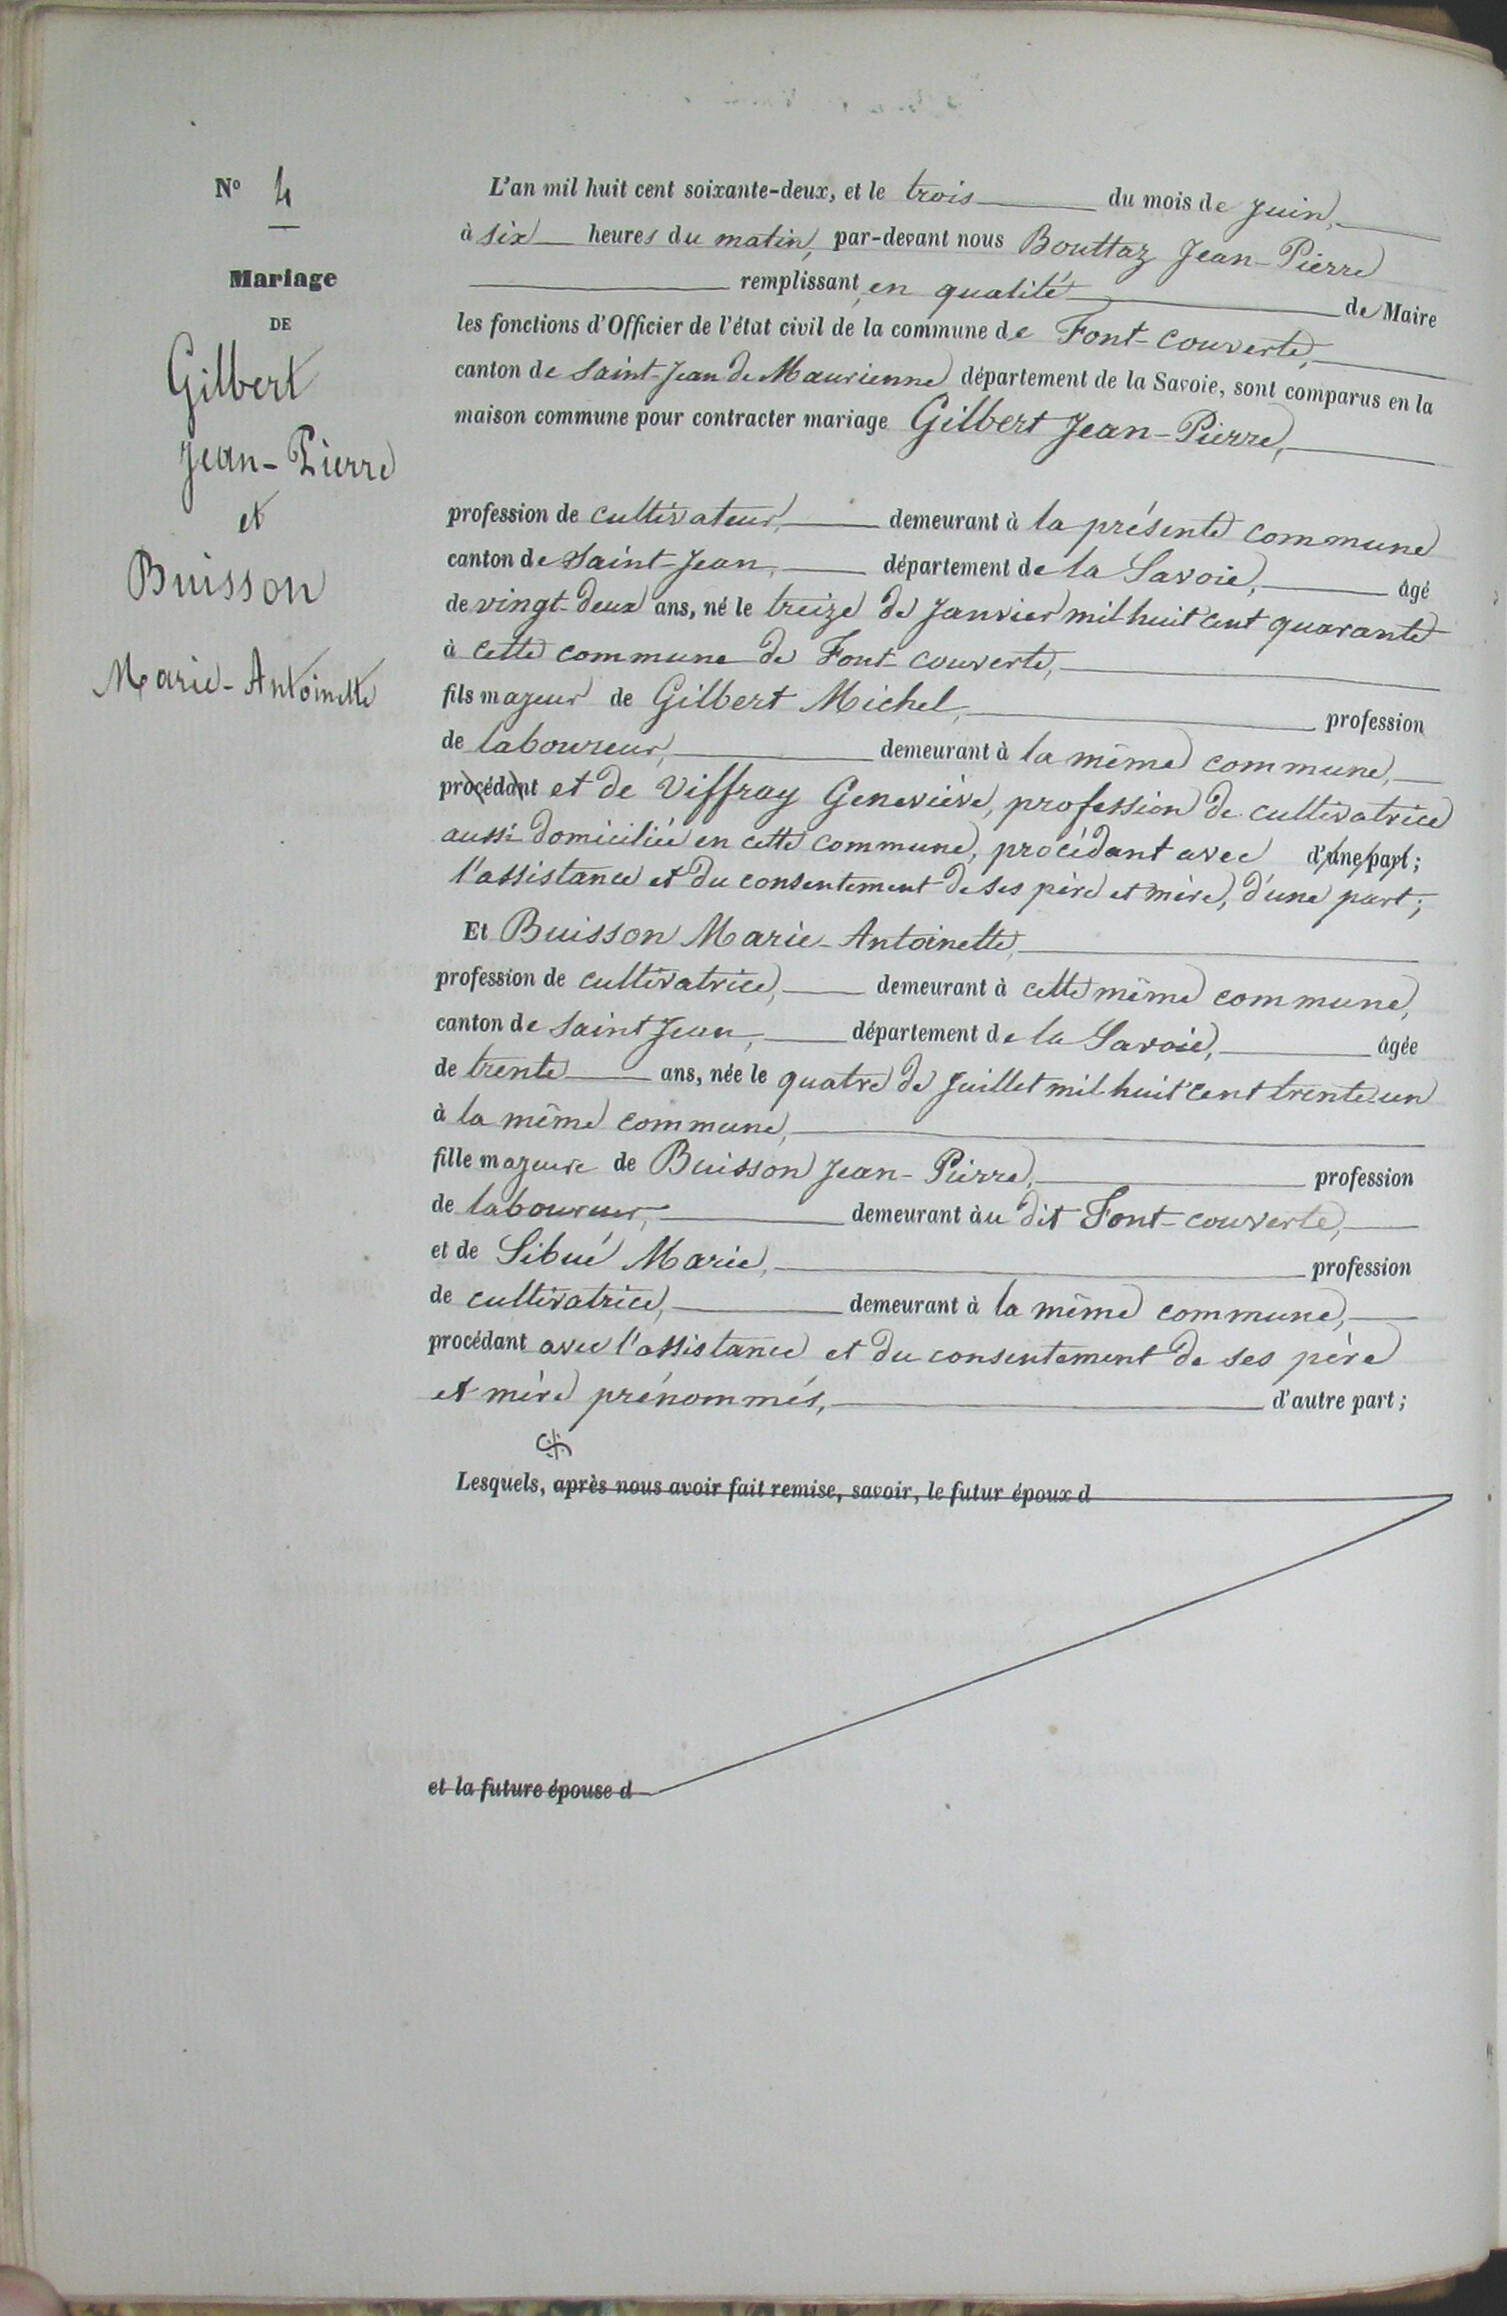 N° 4
Mariage
DE
Gilbert
Jean-Pierre
et
Buisson
Marie-Antoinette
L'an mil huit cent soixante-deux, et le trois du mois de Juin,
à six heures du matin, par-devant nous Bouttaz Jean-Pierre
remplissant en qualité de Maire
les fonctions d'Officier de l'état civil de la commune de Font-couverte,
canton de Saint-Jean de Maurienne département de la Savoie, sont comparus en la
maison commune pour contracter mariage Gilbert Jean-Pierre,
profession de cultivateur, demeurant à la présente commune
canton de Saint-Jean, département de la Savoie, âgé
de vingt-deux ans, né le treize de Janvier mil huit cent quarante
à cette commune de Font-couverte,
fils majeur de Gilbert Michel, profession
de laboureur, demeurant à la même commune,
procédant et de Viffray Geneviève, profession de cultivatrice
aussi domiciliée en cette commune, procédant avec d'une part;
l'assistance et du consentement de ses père et mère, d'une part;
Et Buisson Marie-Antoinette,
profession de cultivatrice, demeurant à cette même commune,
canton de Saint Jean, département de la Savoie, âgée
de trente ans, née le quatre de Juillet mil huit cent trente-un
à la même commune,
fille majeure de Buisson Jean-Pierre, profession
de laboureur, demeurant àu dit Font-couverte,
et de Sibué Marie, profession
de cultivatrice, demeurant à la même commune,
procédant avec l'assistance et du consentement de ses père
et mère prénommés, d'autre part;
Lesquels, après nous avoir fait remise, savoir, le futur époux d
et la future épouse d